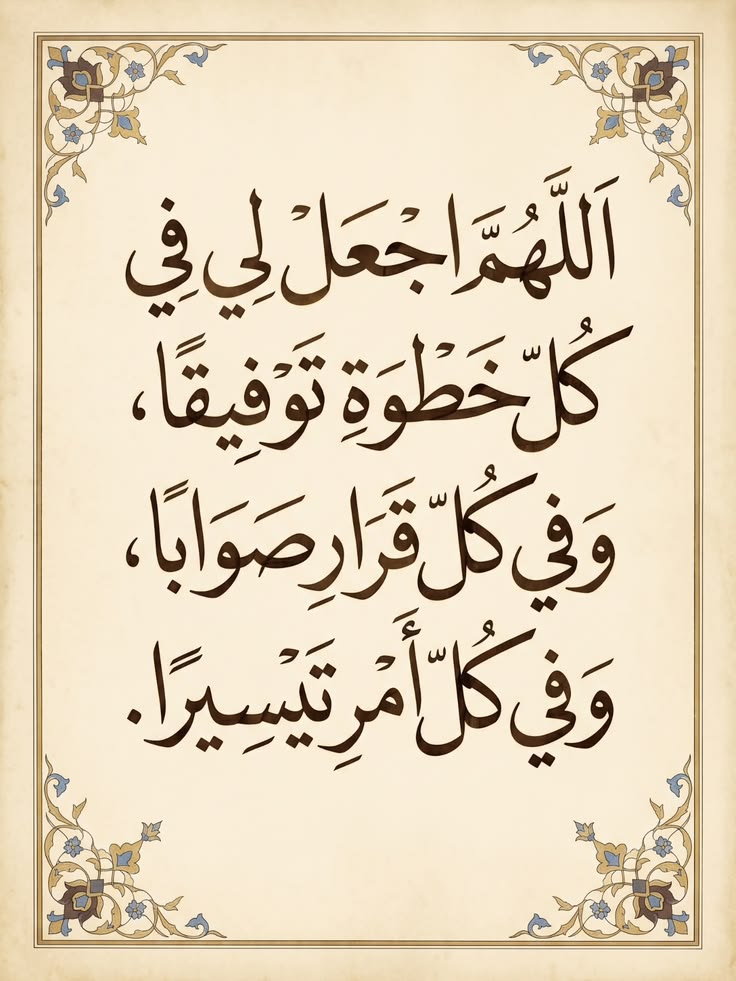 اَللَّهُمَّ اجْعَلْ لِي فِي
كُلّ خَطْوَةِ تَوْفِيقًا،
وَفي كُلّ قَرَارِ صَوَابًا،
وَفي كُلّ أَمْرِ تَيْسِيرًا.